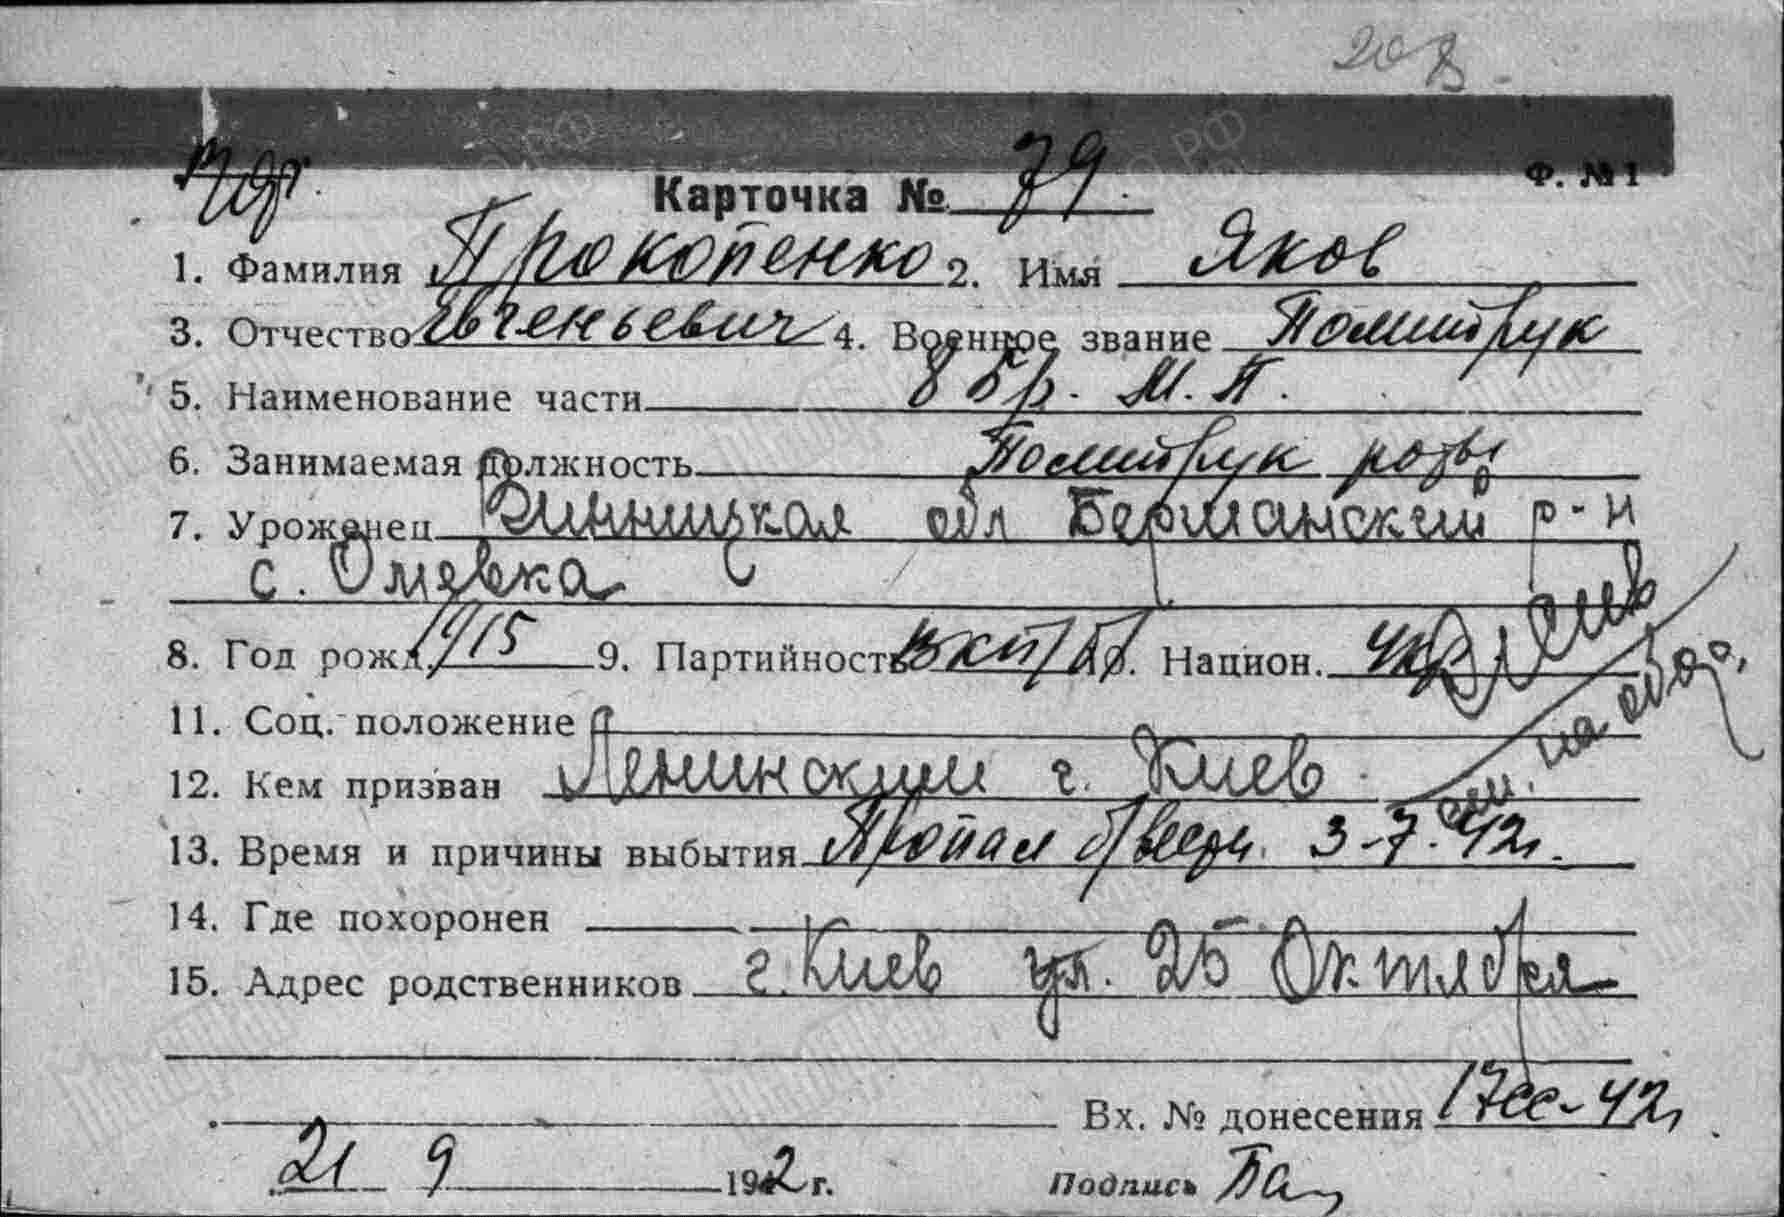 Ф. №1
Карточка № 79.
1. Фамилия Прокопенко 2. Имя Яков
3. Отчество Евгеньевич 4. Военное звание Политрук
5. Наименование части 8 Бр. М. П.
6. Занимаемая должность Политрук роты
7. Уроженец Винницкая обл Бершанский р-н
с. Олиевка
8. Год рожд. 1915 9. Партийность ВКП/б/ 10. Национ. Укр
11. Соц. положение
12. Кем призван Ленинский г. Киев
см. на обор.
13. Время и причины выбытия Пропал б/вести 3-7-42г.
14. Где похоронен
15. Адрес родственников г. Киев ул. 25 Октября
Вх. № донесения 17сс-42г
21 9 1942 г. Подпись